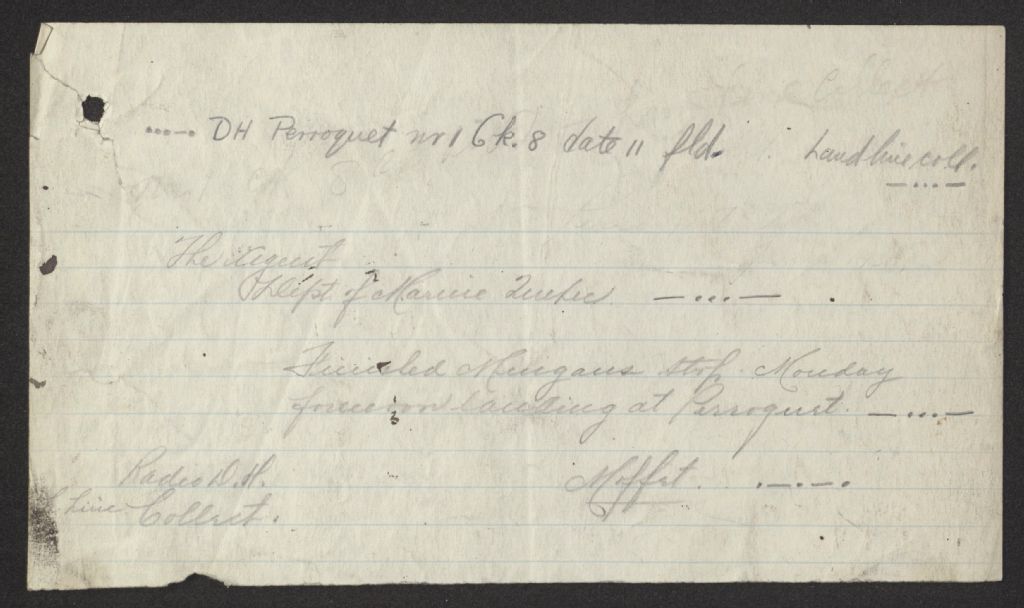 ...-. DH Perroquet nr 1 Ck. 8 date 11 fld. Landline coll.
-...-
The Agent
Dept of Marine Quebec -...- .
Finished Mingans stop Monday
forenoon landing at Perroquet. -...-
Radio D.H. Moffet. .-.-.
Line Collect.